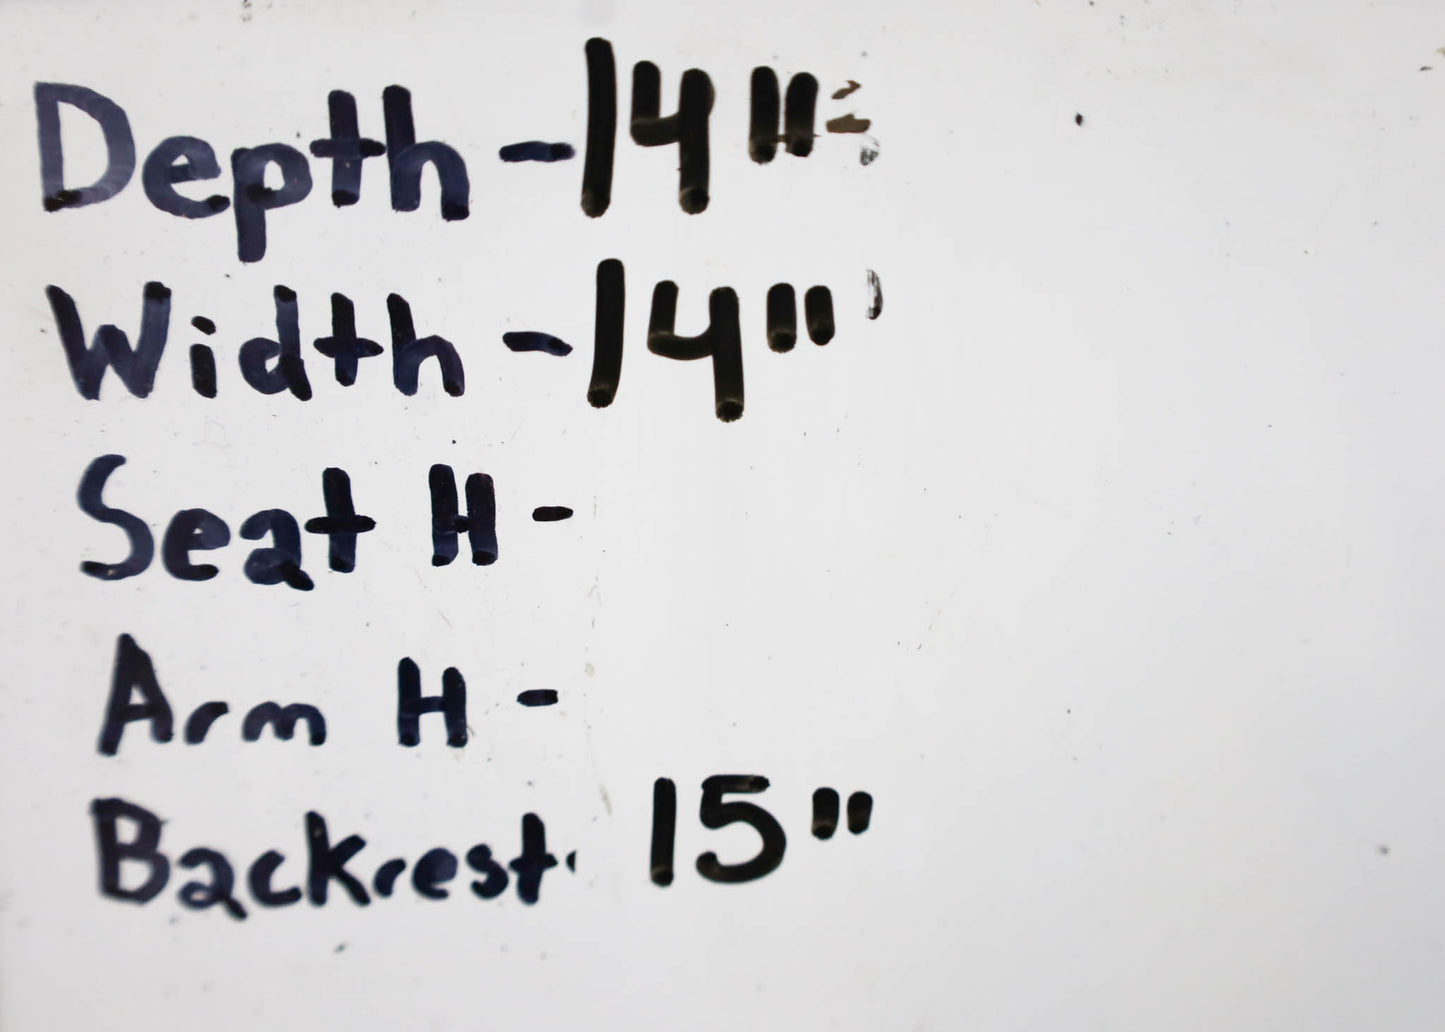 Depth - 14"
Width - 14"
Seat H -
Arm H -
Backrest. 15"